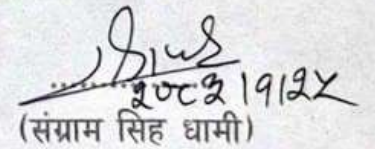 २०८२।१।२४
(संग्राम सिंह धामी)